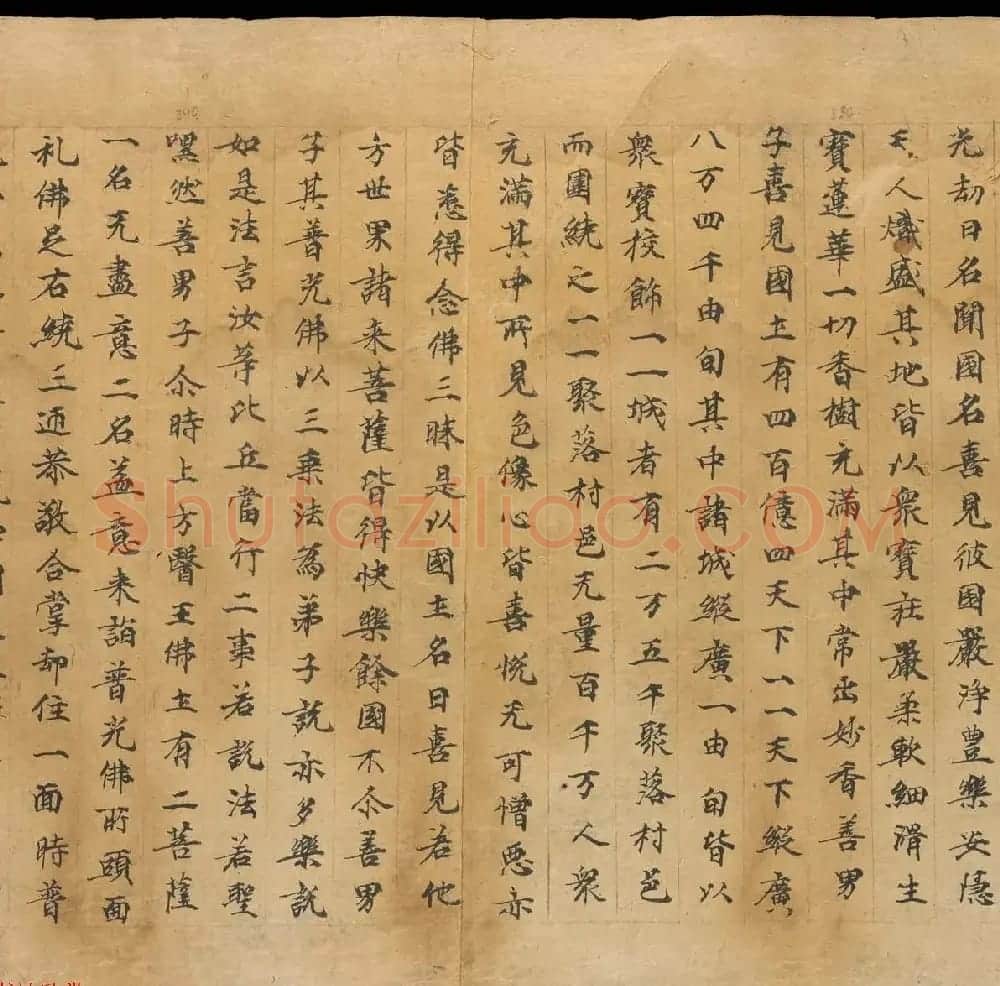 光劫曰名聞国名喜見彼国嚴淨豊樂安隱
天人熾盛其地皆以衆寶莊嚴柔軟細滑生
寶蓮華一切香樹充滿其中常出妙香善男
子喜見國土有四百億四天下一一天下縱廣
八万四千由旬其中諸城縱廣一由旬皆以
衆寶校飾一一城者有二万五千聚落村邑
而圍繞之一一聚落村邑无量百千万人衆
充滿其中所見色像心皆喜悅无可憎惡亦
皆悉得念佛三昧是以國土名曰喜見若他
方世界諸来菩薩皆得快樂餘國不尒善男
子其普光佛以三乗法為弟子說亦多樂說
如是法言汝等比丘當行二事若說法若聖
嘿然善男子尒時上方醫王佛土有二菩薩
一名无盡意二名益意来詣普光佛所頭面
礼佛足右繞三迊恭敬合掌却住一面時普
Shufaziliao.COM